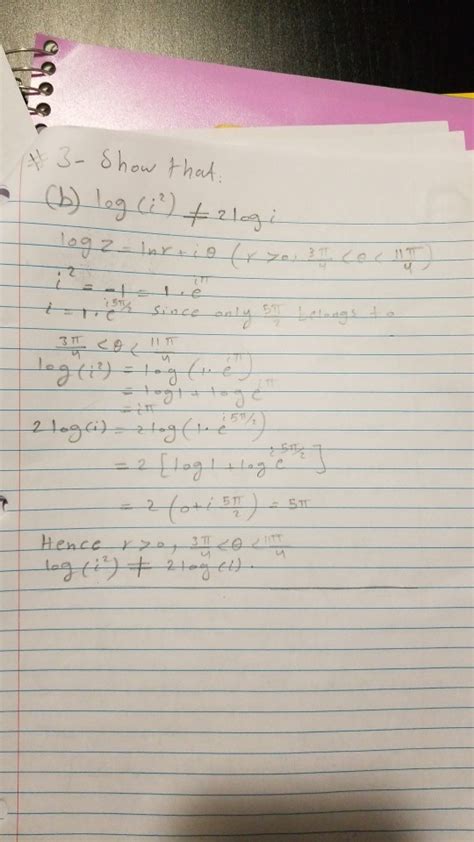 # 3- Show that:
(b) log(i²) ≠ 2logi
log z = lnr + iθ (r>0, 3π/4 < θ < 11π/4)
i² = -1 = 1·e^iπ
i = 1·e^i5π/2 since only 5π/2 belongs to
3π/4 < θ < 11π/4
log(i²) = log(1·e^iπ)
= log1 + log e^iπ
= iπ
2log(i) = 2log(1·e^i5π/2)
= 2[log1 + log e^i5π/2]
= 2(0+i 5π/2) = 5π
Hence r>0, 3π/4 < θ < 11π/4
log(i²) ≠ 2log(i).